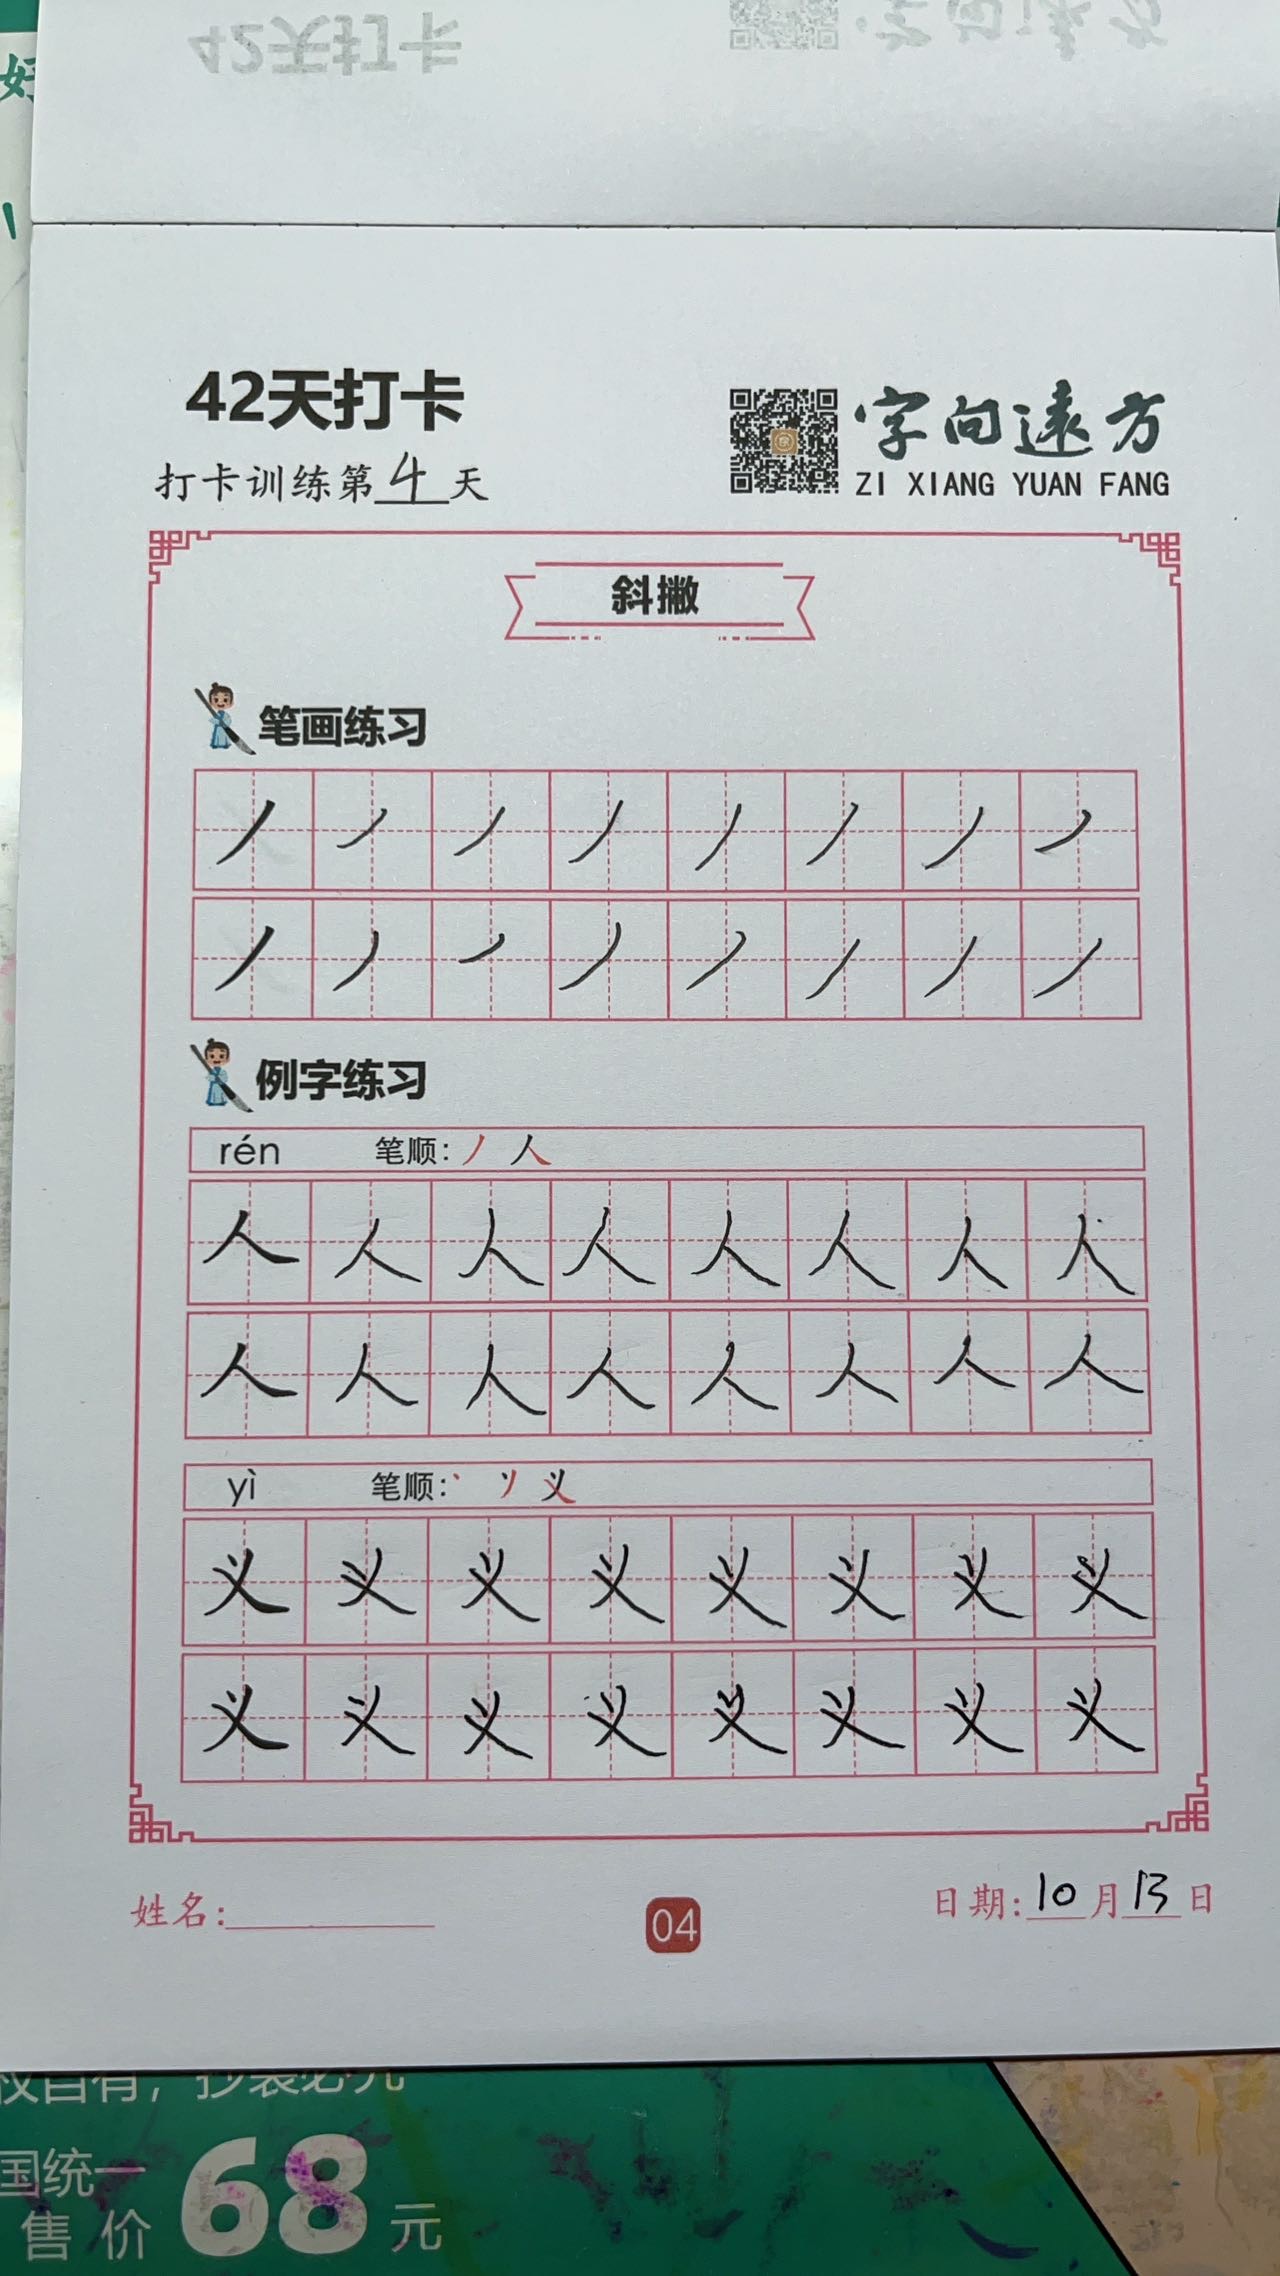 好
42天打卡
字向遠方
42天打卡
打卡训练第4天
字向遠方
ZI XIANG YUAN FANG
斜撇
笔画练习
丿丿丿丿丿丿丿丿
丿丿丿丿丿丿丿丿
例字练习
rén 笔顺:丿 人
人人人人人人人人
人人人人人人人人
yì 笔顺:丶 丷 义
义义义义义义义义
义义义义义义义义
姓名:
04
日期:10月13日
权自有，抄袭必究
国统一
售价68元